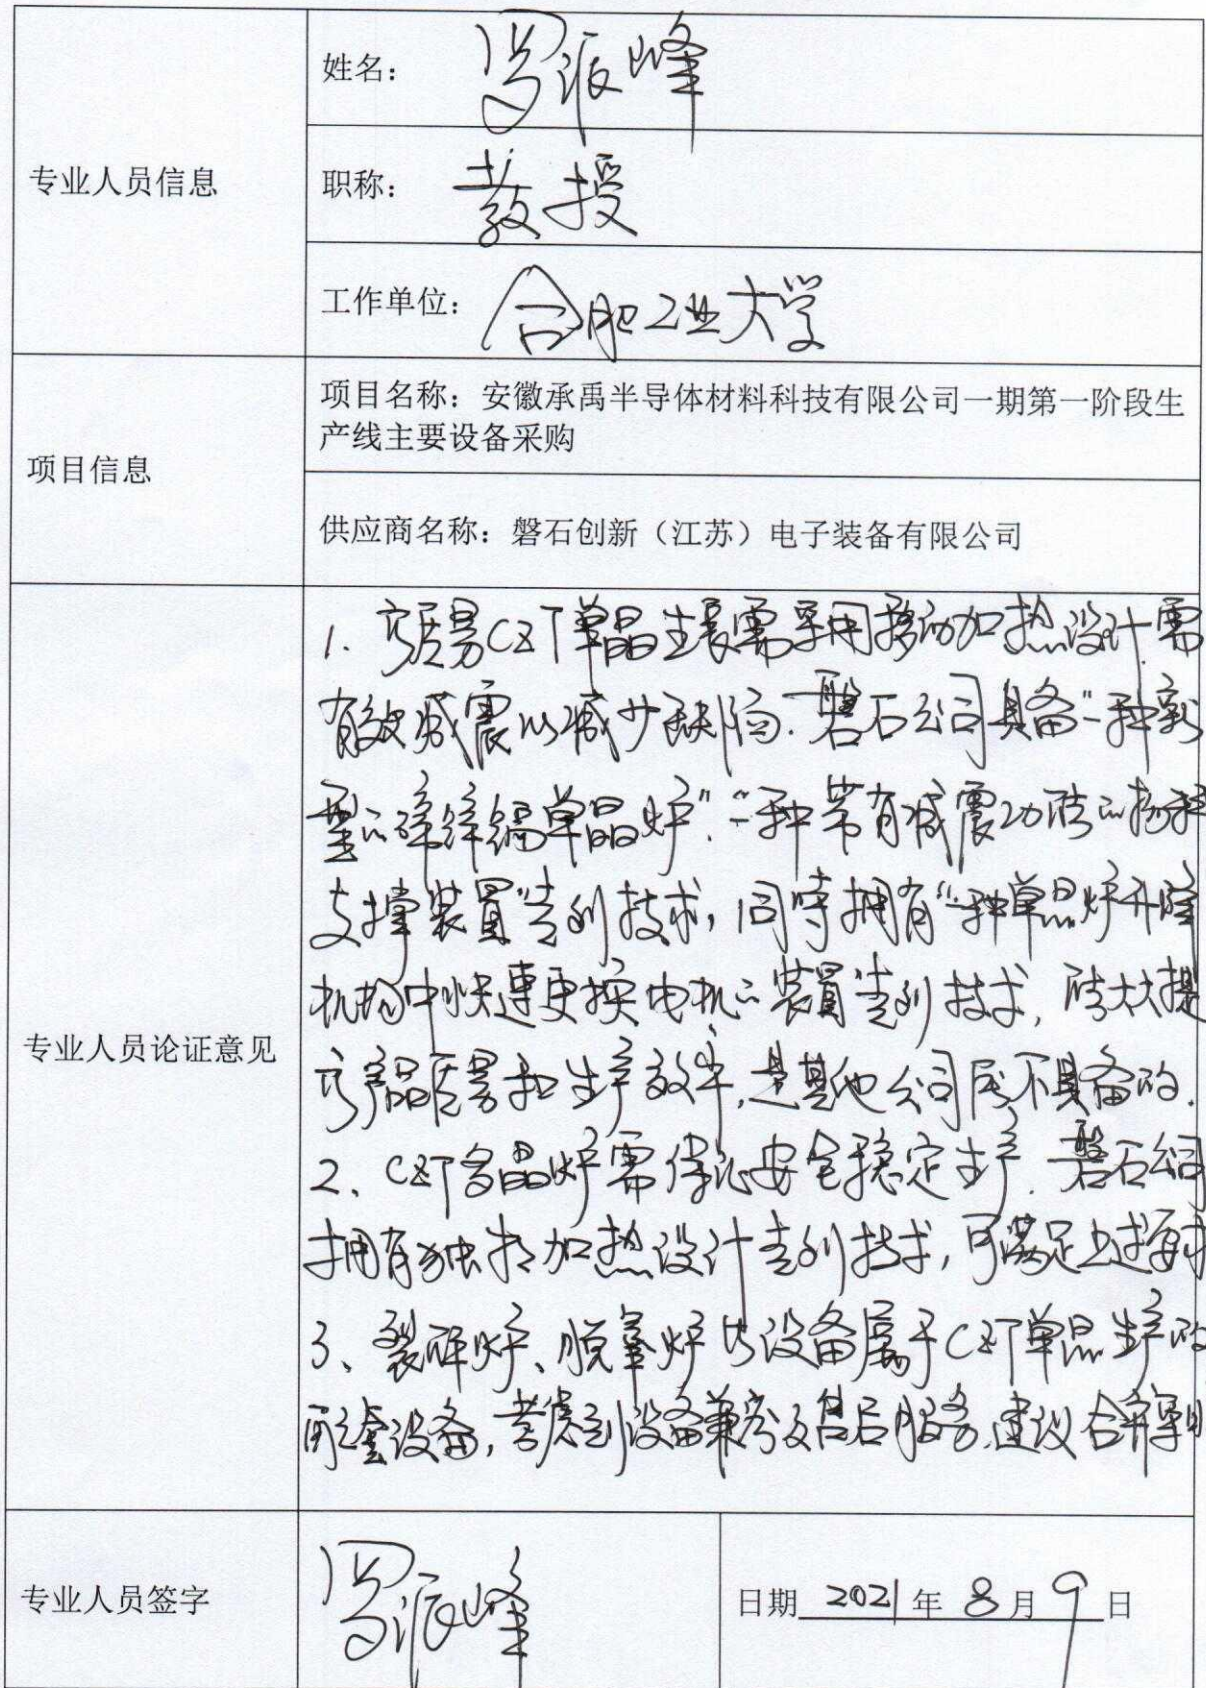 专业人员信息
姓名：罗派峰
职称：教授
工作单位：合肥工业大学
项目信息
项目名称：安徽承禹半导体材料科技有限公司一期第一阶段生
产线主要设备采购
供应商名称：磐石创新（江苏）电子装备有限公司
专业人员论证意见
1. 高质量CZT单晶生长需采用移动加热设计，需
有效减震以减少缺陷．磐石公司具备“一种新
型的碲锌镉单晶炉”．“一种带有减震功能的物料
支撑装置”专利技术，同时拥有“一种单晶炉升降
机构中快速更换电机的装置”专利技术，能大大提
高产品质量和生产效率，是其他公司所不具备的．
2、CZT多晶炉需保证安全稳定生产．磐石公司
拥有独特加热设计专利技术，可满足上述要求
3、裂解炉、脱氧炉等设备属于CZT单晶生产的
配套设备，考虑到设备兼容及售后服务，建议合并采购
专业人员签字
罗派峰
日期 2021 年 8 月 9 日